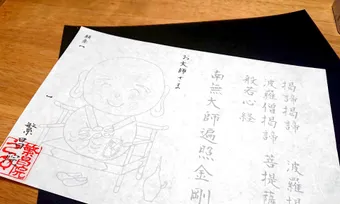 羯諦羯諦 波羅羯
波羅僧羯諦 菩提薩
般若心経
南無大師遍照金剛
お大師さま
繁昌